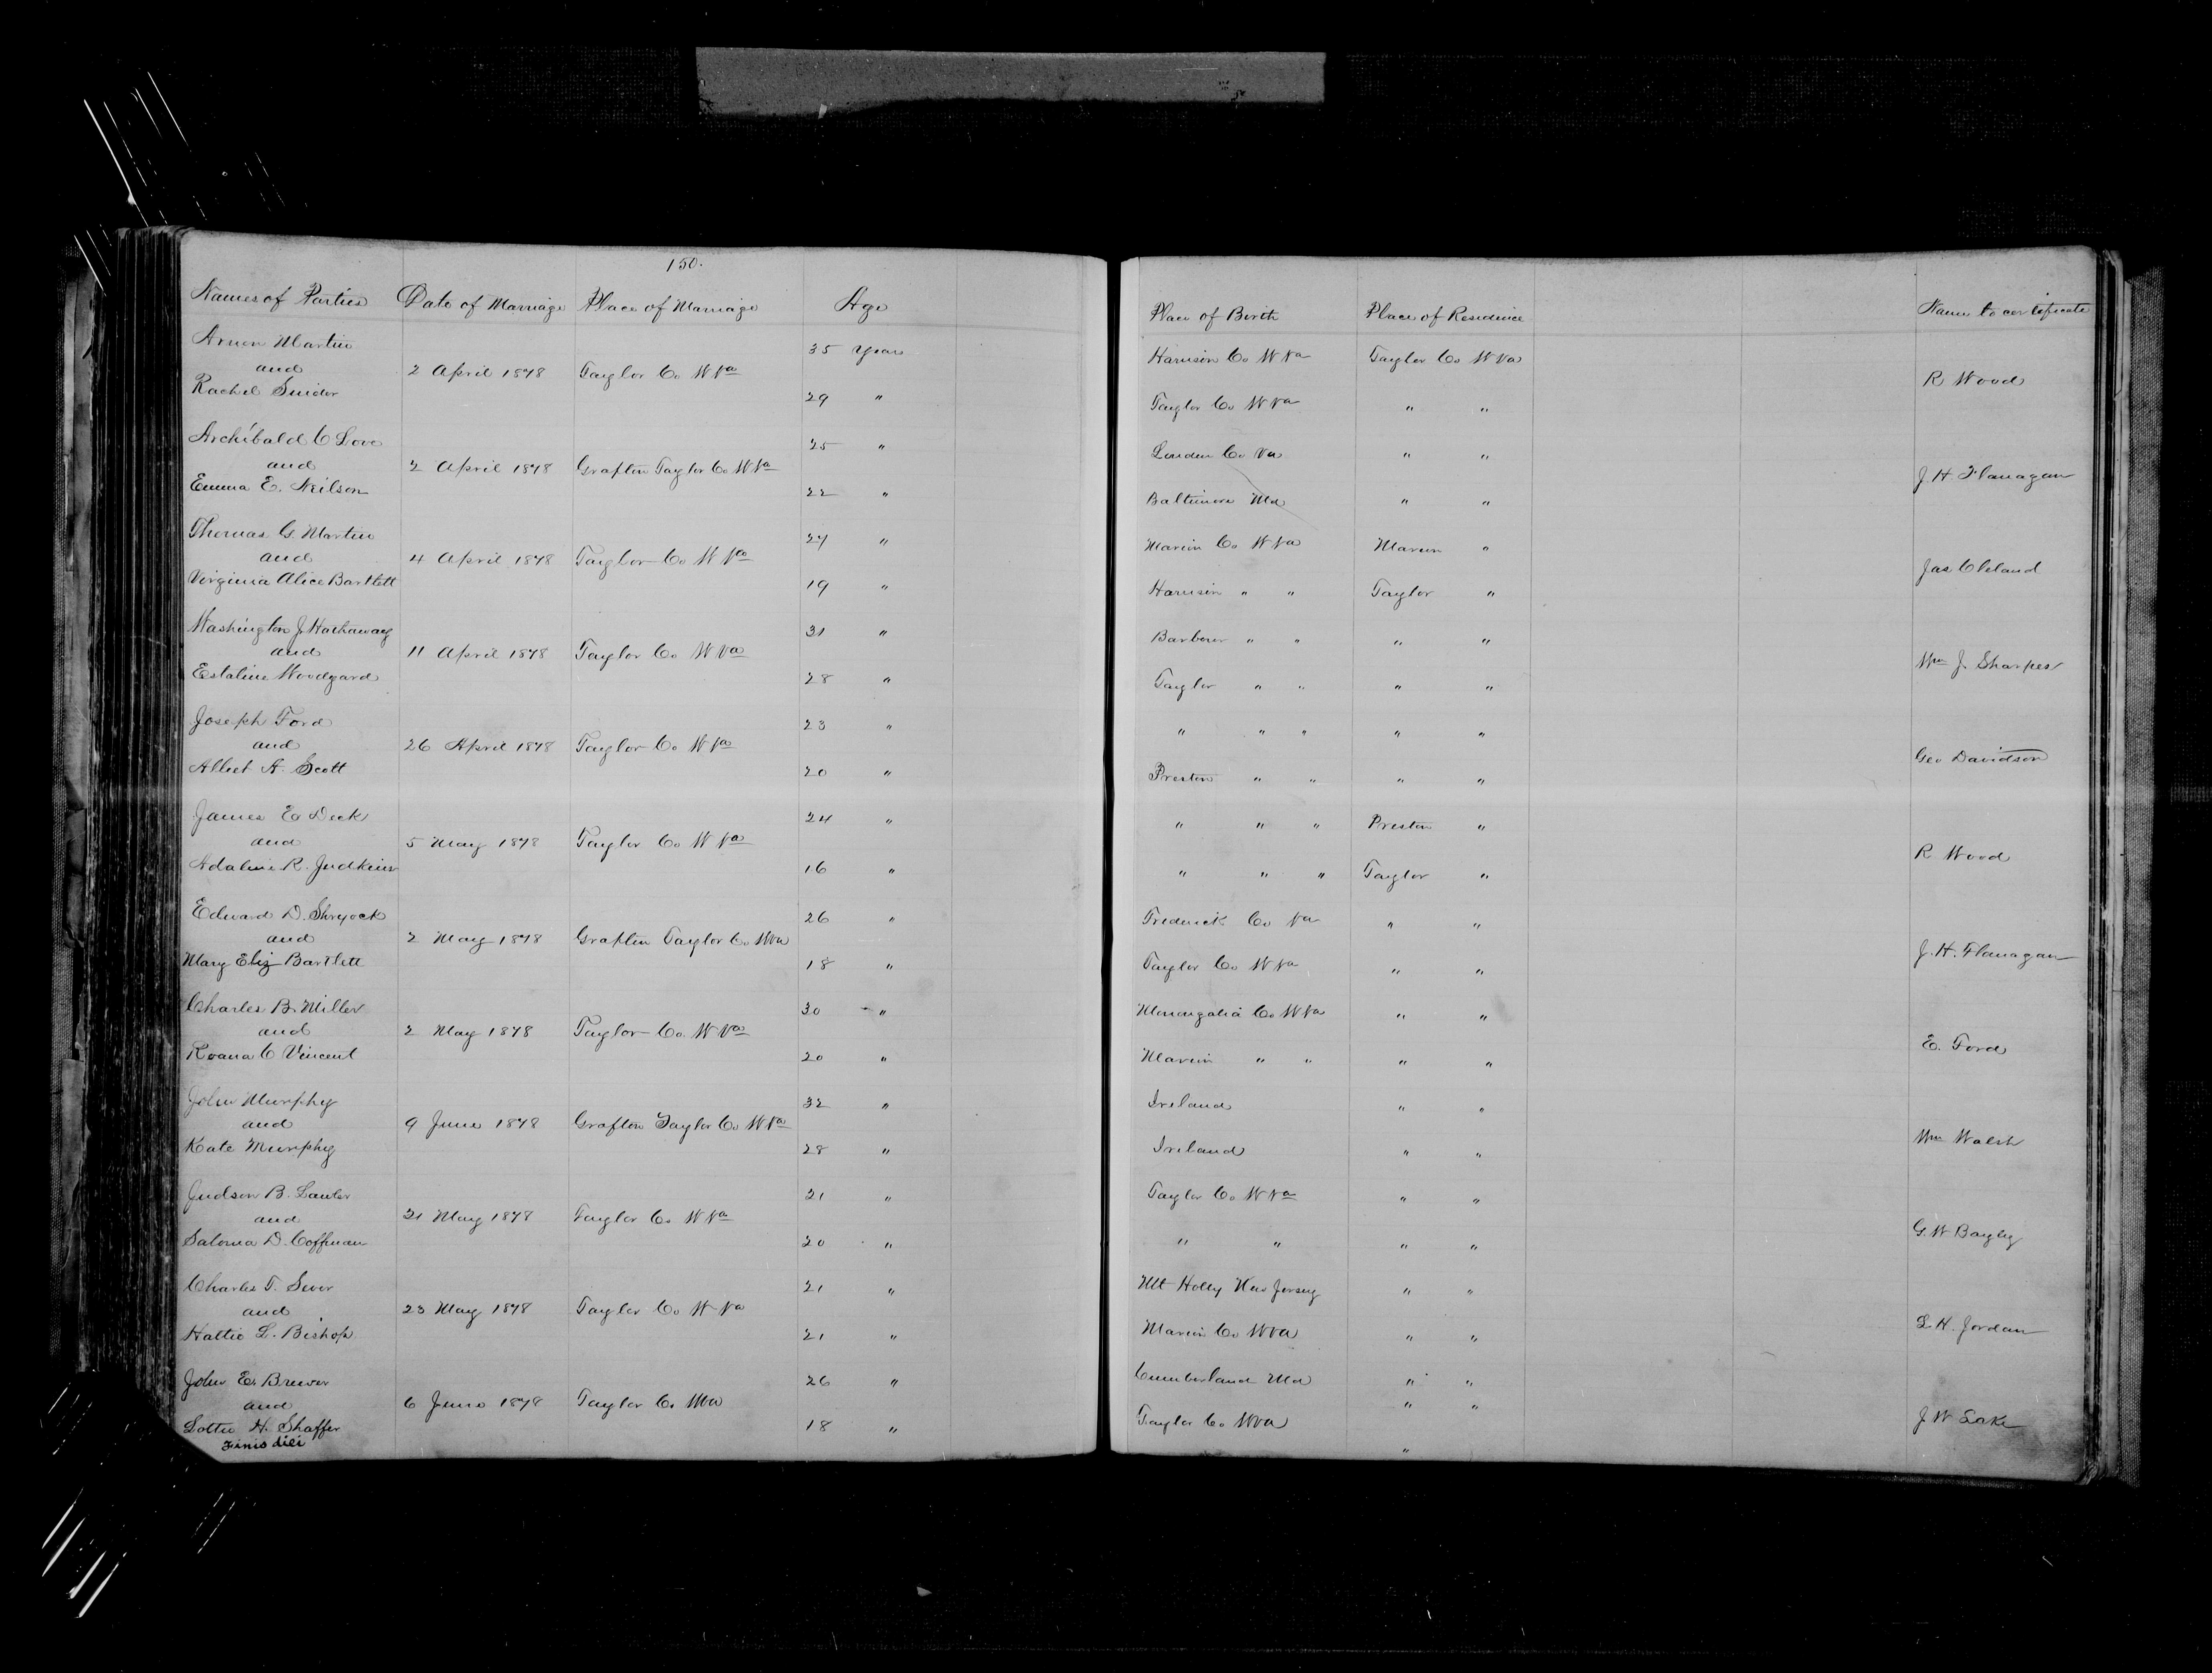 150.
Names of Parties Date of Marriage Place of Marriage Age Place of Birth Place of Residence Name to certificate
Arnon Martin 35 Years Harrison Co W Va Taylor Co W Va
and 2 April 1878 Taylor Co W Va R Wood
Rachel Snider 29 " Taylor Co W Va " "
Archibald C Love 25 " Louden Co Va " "
and 2 April 1878 Grafton Taylor Co W Va J H Flanagan
Emma E. Neilson 22 " Baltimore Md " "
Thomas G. Martin 27 " Marion Co W Va Marion "
and 4 April 1878 Taylor Co W Va Jas Cleland
Virginia Alice Bartlett 19 " Harrison " " Taylor "
Washington J Hathaway 31 " Barbour " " " "
and 11 April 1878 Taylor Co W Va Wm J. Sharpes
Estaline Woodyard 28 " Taylor " " " "
Joseph Ford 23 " " " " " "
and 26 April 1878 Taylor Co W Va Geo Davidson
A. Scott 20 " Preston " " " "
James E Deck 24 " " " " Preston "
and 5 May 1878 Taylor Co W Va R Wood
Adaline R. Judkins 16 " " " " Taylor "
Edward D. Shryock 26 " Frederick Co Va " "
and 2 May 1878 Grafton Taylor Co Wva J. H. Flanagan
Mary Eliz Bartlett 18 " Taylor Co W Va " "
Charles B. Miller 30 " Monongalia Co W Va " "
and 2 May 1878 Taylor Co. W Va E. Ford
Roana C Vincent 20 " Marion " " " "
John Murphy 32 " Ireland " "
and 9 June 1878 Grafton Taylor Co W Va Wm Walsh
Kate Murphy 28 " Ireland " "
Judson B. Lanter 21 " Taylor Co W Va " "
and 21 May 1878 Taylor Co W Va G. W Bayly
Saloma D. Coffman 20 " " " " "
Charles T. 21 " Mt Holly New Jersey " "
and 23 May 1878 Taylor Co W Va L H. Jordan
Hattie L. Bishop 21 " Marion Co Wva " "
John E. Brewer 26 " Cumberland Md " "
and 6 June 1878 Taylor Co Wva " " J W Lake
Lottie H. Shaffer 18 " Taylor Co Wva
Finis diei "